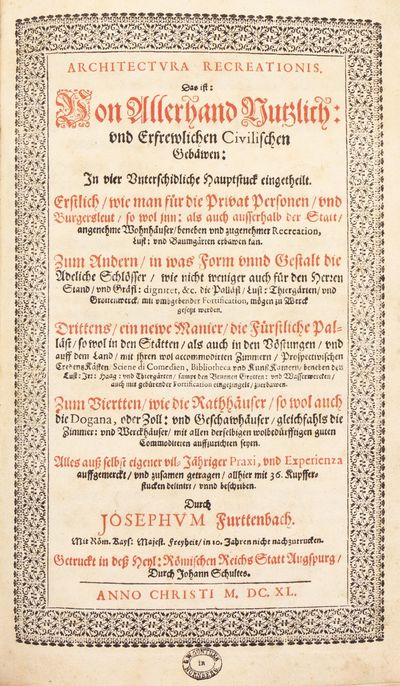 ARCHITECTVRA RECREATIONIS.
Das ist:
Von Allerhand Nutzlich:
vnd Erfrewlichen Civilischen
Gebäwen:
In vier Vnterschidliche Hauptstuck eingetheilt.
Erstlich / wie man für die Privat Personen / vnd
Burgersleut / so wol jnn: als auch ausserhalb der Statt /
angenehme Wohnhäuser / beneben vnd zugenehmer Recreation,
Lust: vnd Baumgärten erbawen kan.
Zum Andern / in was Form vnnd Gestalt die
Adeliche Schlösser / wie nicht weniger auch für den Herren
Stand / vnd Gräfl: dignitet, &c. die Palläst / Lust: Thiergärten / vnd
Grottenwerck, mit vmbgebender Fortification, mögen zu Werck
gesetzt werden.
Drittens / ein newe Manier / die Fürstliche Pal-
läst / so wol in den Stätten / als auch in den Vöstungen / vnd
auff dem Land / mit jhren wol accommodirten Zimmern / Prospectivischen
Sciene di Comedien, Bibliotheca vnd Kunst Kamern / beneben den
Lust: Zier: Haag: vnd Thiergärten / sampt den Grotten: vnd Wasserwercken /
auch mit gebürender Fortification eingezingelt / zuerbawen.
Zum Viertten / wie die Rathhäuser / so wol auch
die Dogana, oder Zoll: vnd Geschawhäuser / gleichfahls die
Zimmer: vnd Werckhäuser / mit allen derselbigen wolbedürfftigen guten
Commoditeten auffzurichten seyen.
Alles auß selbst eigener vil-Jähriger Praxi, vnd Experienza
auffgemerckt / vnd zusamen getragen / allhier mit 36. Kupffer-
stucken delinirt / vnnd beschriben.
Durch
JOSEPHVM Furttenbach.
Mit Röm. Kays: Majest. Freyheit / in 10. Jahren nicht nachzutrucken.
Getruckt in deß Heyl: Römischen Reichs Statt Augspurg /
Durch Johann Schultes.
ANNO CHRISTI M. DC. XL.
in